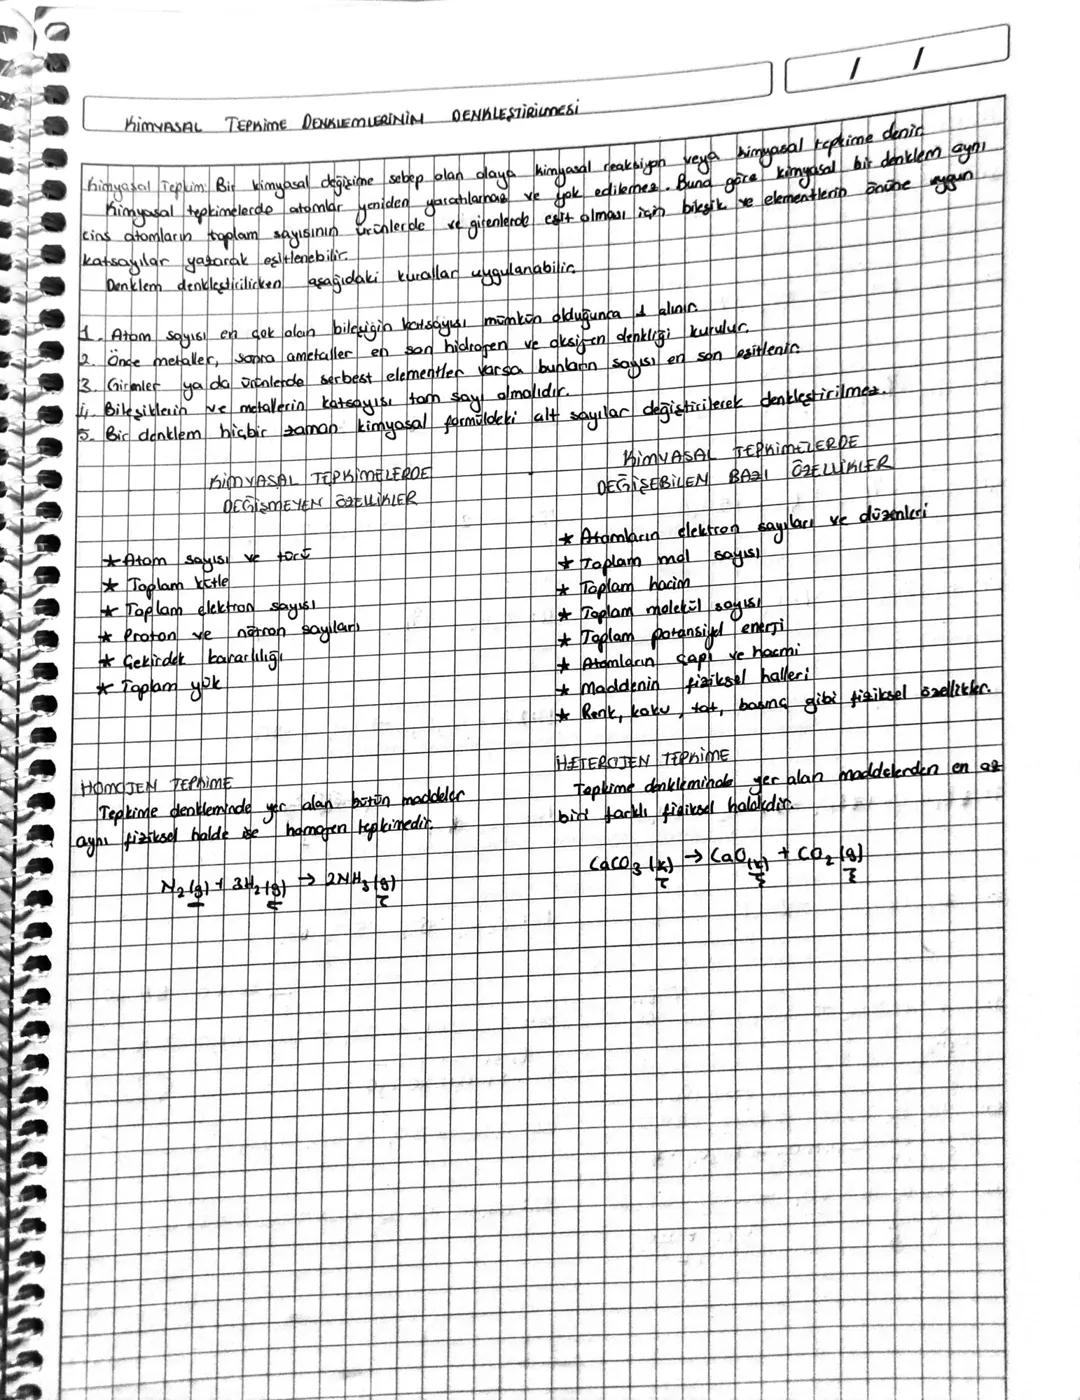 / /
KİMYASAL TEPKİME DENKLEMLERİNİN DENKLEŞTİRİLMESİ
Kimyasal Tepkim: Bir kimyasal değişime sebep olan olaya kimyasal reaksiyon veya kimyasal tepkime denir.
Kimyasal tepkimelerde atomlar yeniden yaratılamaz ve yok edilemez. Buna göre kimyasal bir denklem aynı
cins atomların toplam sayısının ürünlerde ve girenlerde eşit olması için bileşik ve elementlerin önüne uygun
katsayılar yazarak eşitlenebilir.
Denklem denkleştirilirken aşağıdaki kurallar uygulanabilir.
1. Atom sayısı en çok olan bileşiğin katsayısı mümkün olduğunca 1 alınır.
2. Önce metaller, sonra ametaller en son hidrojen ve oksijen denkliği kurulur.
3. Girenler ya da ürünlerde serbest elementler varsa bunların sayısı en son eşitlenir.
4. Bileşiklerin ve metallerin katsayısı tam sayı olmalıdır.
5. Bir denklem hiçbir zaman kimyasal formüldeki alt sayılar değiştirilerek denkleştirilmez.
KİMYASAL TEPKİMELERDE
DEĞİŞMEYEN ÖZELLİKLER
★ Atom sayısı ve türü
★ Toplam kütle
★ Toplam elektron sayısı
★ Proton ve nötron sayıları
★ Çekirdek kararlılığı
★ Toplam yük
KİMYASAL TEPKİMELERDE
DEĞİŞEBİLEN BAZI ÖZELLİKLER
★ Atomların elektron sayıları ve düzenleri
★ Toplam mol sayısı
★ Toplam hacim
★ Toplam molekül sayısı
★ Toplam potansiyel enerji
★ Atomların çapı ve hacmi
★ Maddenin fiziksel halleri
★ Renk, koku, tat, basınç gibi fiziksel özellikler.
HOMOJEN TEPKİME
Tepkime denkleminde yer alan bütün maddeler
aynı fiziksel halde ise homojen tepkimedir.
N₂(g) + 3H₂(g) → 2NH₃(g)
HETEROJEN TEPKİME
Tepkime denkleminde yer alan maddelerden en az
biri farklı fiziksel haldedir.
CaCO₃(k) → CaO(k) + CO₂(g)